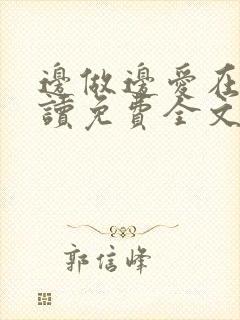 邊做邊愛在
讀免費全文
郭信峰